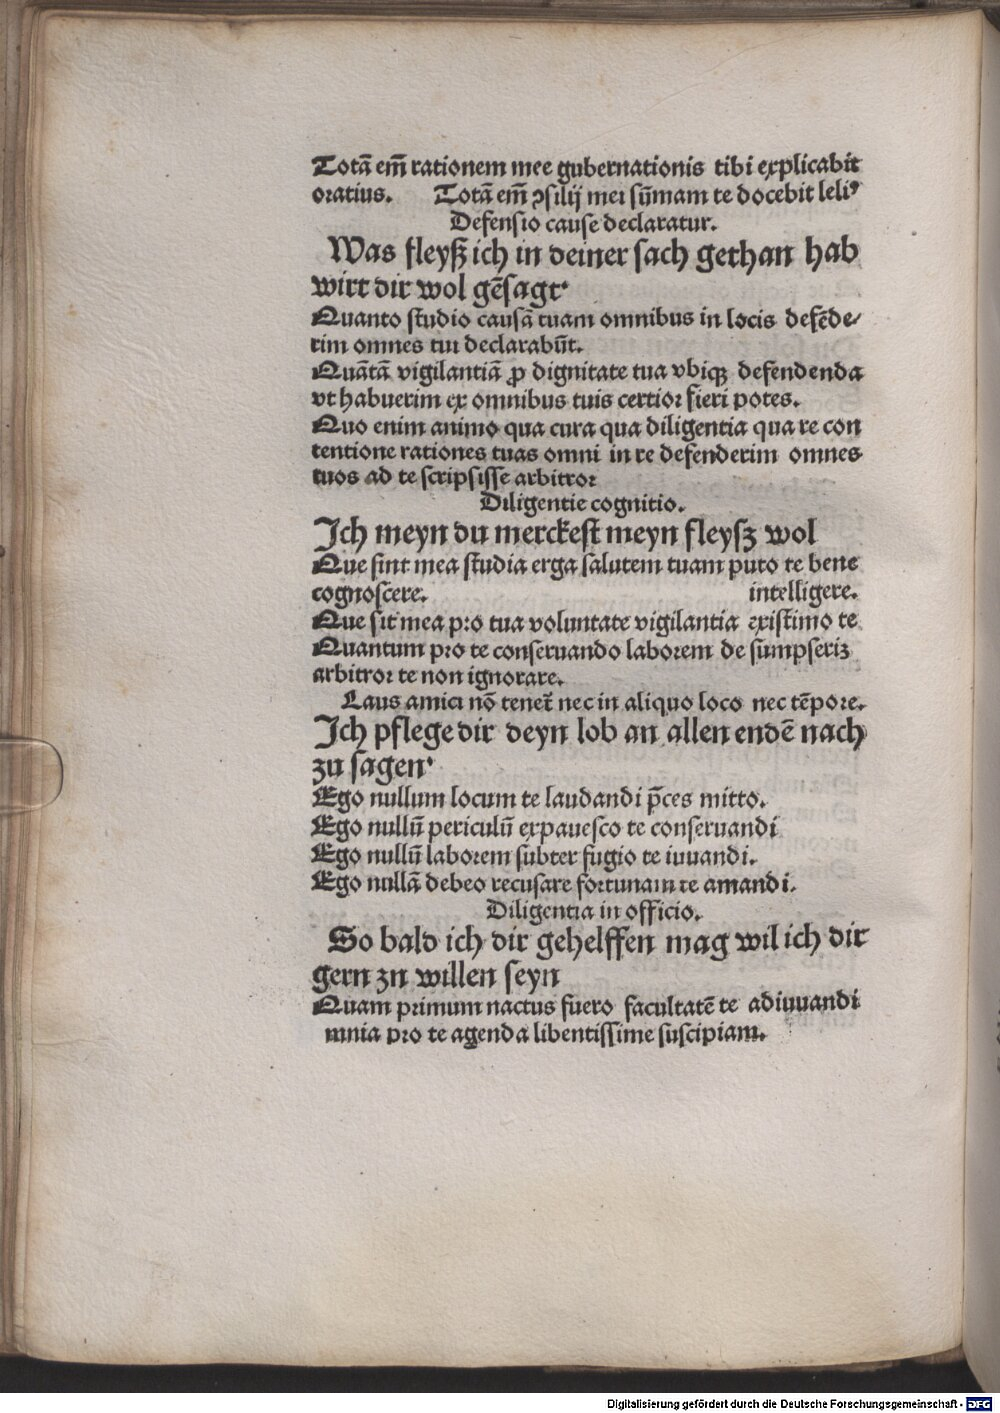 Totā em̄ rationem mee gubernationis tibi explicabit
oratius. Totā em̄ ꝯsilij mei sūmam te docebit leliꝰ
Defensio cause declaratur.
Was fleyß ich in deiner sach gethan hab
wirt dir wol gēsagt
Quanto studio causā tuam omnibus in locis defēde/
rim omnes tui declarabūt.
Quātā vigilantiā ꝓ dignitate tua vbiqꝫ defendenda
vt habuerim ex omnibus tuis certior fieri potes.
Quo enim animo qua cura qua diligentia qua re con
tentione rationes tuas omni in re defenderim omnes
tuos ad te scripsisse arbitror
Diligentie cognitio.
Ich meyn du merckest meyn fleysz wol
Que sint mea studia erga salutem tuam puto te bene
cognoscere. intelligere.
Que sit mea pro tua voluntate vigilantia existimo te
Quantum pro te conseruando laborem de sumpseriz
arbitror te non ignorare.
Laus amici nō tenet̄ nec in aliquo loco nec tēpore.
Ich pflege dir deyn lob an allen endē nach
zu sagen
Ego nullum locum te laudandi p̄ces mitto.
Ego nullū periculū expauesco te conseruandi
Ego nullū laborem subter fugio te iuuandi.
Ego nullā debeo recusare fortunam te amandi.
Diligentia in officio.
So bald ich dir gehelffen mag wil ich dir
gern zu willen seyn
Quam primum nactus fuero facultatē te adiuuandi
mnia pro te agenda libentissime suscipiam.
Digitalisierung gefördert durch die Deutsche Forschungsgemeinschaft - DFG